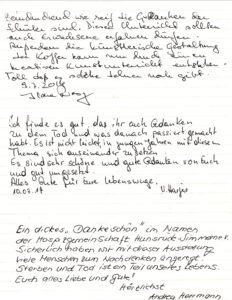 wie reif die Gedanken der
Schüler sind. Diesen Unterricht sollten
auch Erwachsene erfahren dürfen.
Außerdem die künstlerische Gestaltung
der Koffer kann nur durch einen
kreativen Kunstunterricht entstehen.
Toll daß es solche Lehrer noch gibt.
9.7.2017
Ich finde es gut das ihr euch Gedanken
zu dem Tod und was danach passiert gemacht
habt. Es ist nicht leicht in jungen Jahren mit diesem
Thema sich auseinander zu setzen.
Es sind sehr schöne und gute Gedanken von Euch
und gut umgesetzt.
Alles Gute für eure Lebenswege.
10.07.17
Ein dickes „Dankeschön" im Namen
der Hospizgemeinschaft Hunsrück-Simmern e.V.
Sicherlich haben wir mit dieser Ausstellung
viele Menschen zum Nachdenken angeregt.
Sterben und Tod ist ein Teil unseres Lebens.
Euch alles Liebe und Gute!
Herzlichst
Andrea Herrmann